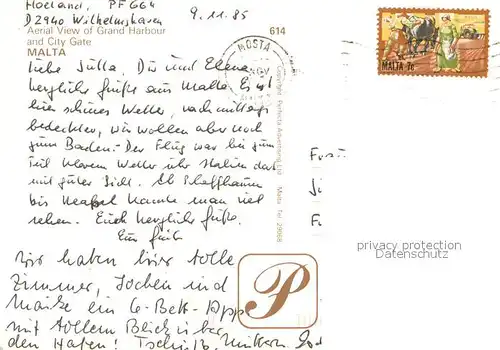 PF 664
D2940 Wilhelmshaven
9.11.85
Aerial View of Grand Harbour
and City Gate
MALTA
614
MOSTA
NOV
MALTA 7c
Liebe Jutta, Du und Elena
herzliche Grüße aus Malta. Es ist
hier schönes Wetter, nachmittags
bedeckter, wir wollen aber noch
zum Baden. Der Flug war bis zum
Teil klarem Wetter über Italien dat
mit guter Sicht. Ab Schaffhausen
bis Neapel konnte man viel
sehen. Euch herzliche Grüße.
Wir haben hier tolle
Zimmer, Jochen und
Maike ein 6-Bett-App
mit tollem Blick über
den Hafen! Tschüß,
Copyright - Perfecta Advertising Ltd Malta Tel 29068
Frau
J
F
P
privacy protection
Datenschutz